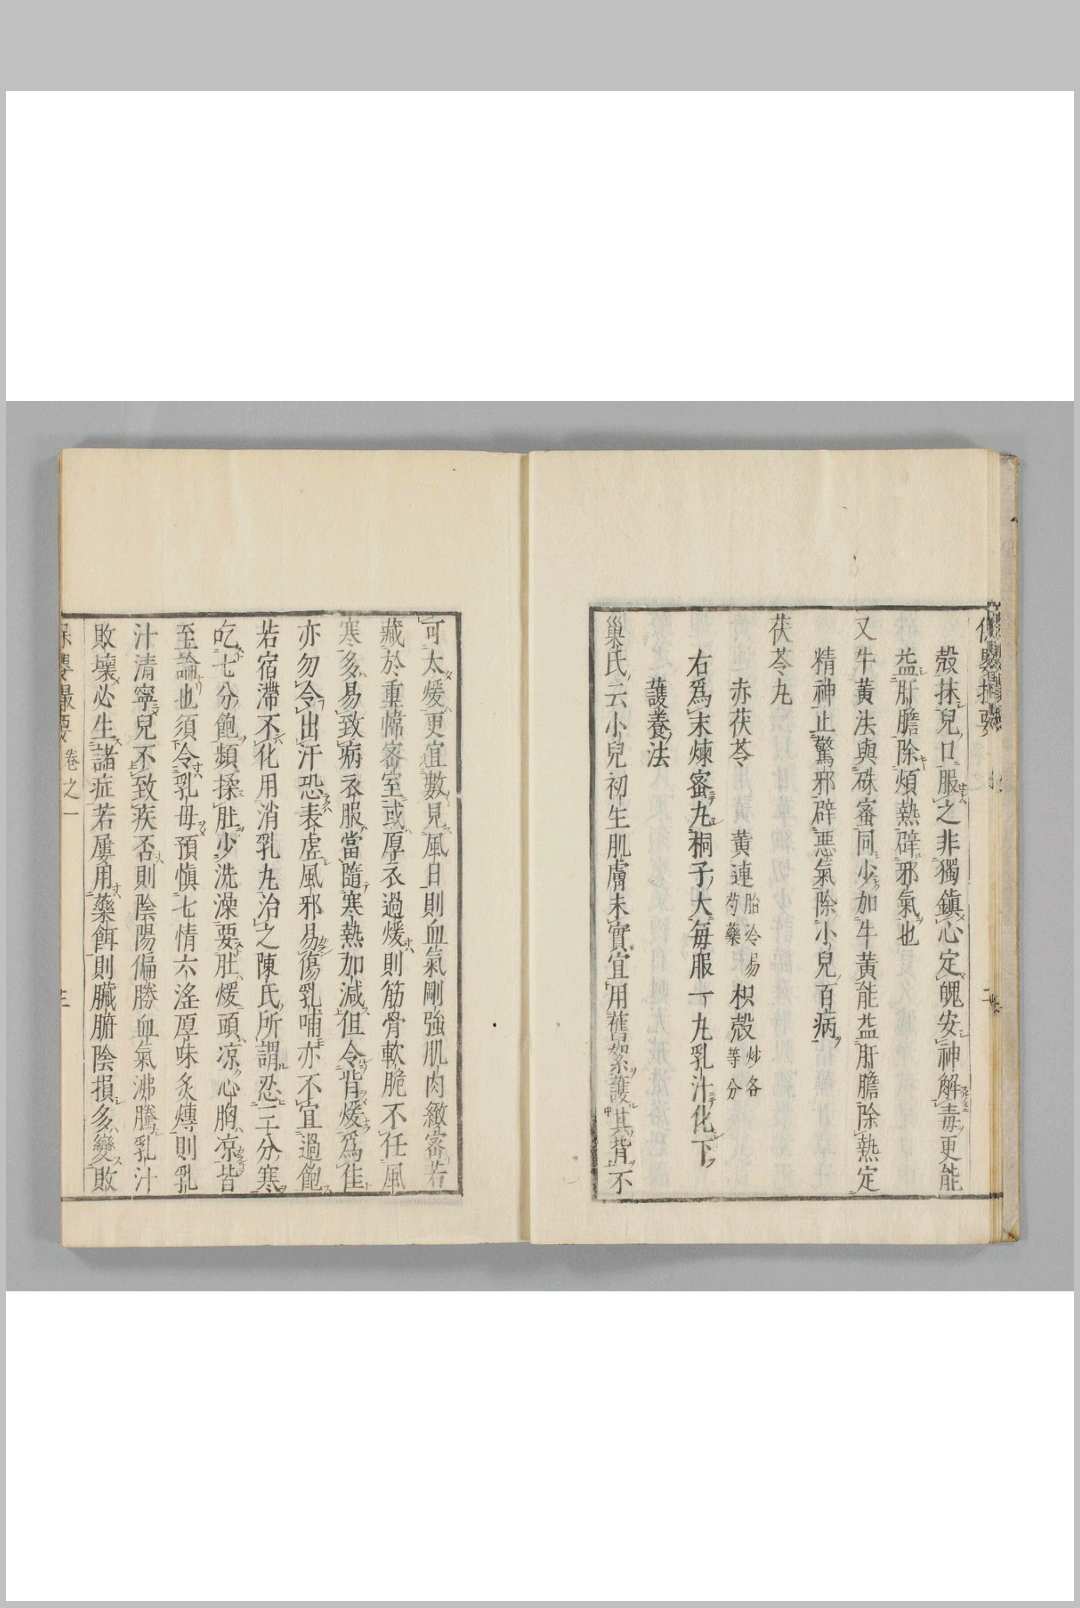 殼抹兒口服之非獨鎮心定魄安神解毒更能
益肝膽除煩熱辟邪氣也
又牛黃法與硃蜜同少加牛黃能益肝膽除熱定
精神止驚邪辟惡氣除小兒百病
茯苓丸
赤茯苓 黃連胎冷易芍藥 枳殼炒各等分
右爲末煉蜜丸桐子大每服一丸乳汁化下
護養法
巢氏云小兒初生肌膚未實宜用舊絮護其背不
可太煖更宜數見風日則血氣剛強肌肉緻密若
藏於重幃密室或厚衣過煖則筋骨軟脆不任風
寒多易致病衣服當隨寒熱加減但令背煖爲佳
亦勿令出汗恐表虛風邪易傷乳哺亦不宜過飽
若宿滯不化用消乳丸治之陳氏所謂忍三分寒
吃七分飽頻揉肚少洗澡要肚煖頭凉心胸凉皆
至論也須令乳母預慎七情六淫厚味炙煿則乳
汁清寧兒不致疾否則陰陽偏勝血氣沸騰乳汁
敗壞必生諸症若屢用藥餌則臟腑陰損多變敗
保嬰撮要 卷之一 三